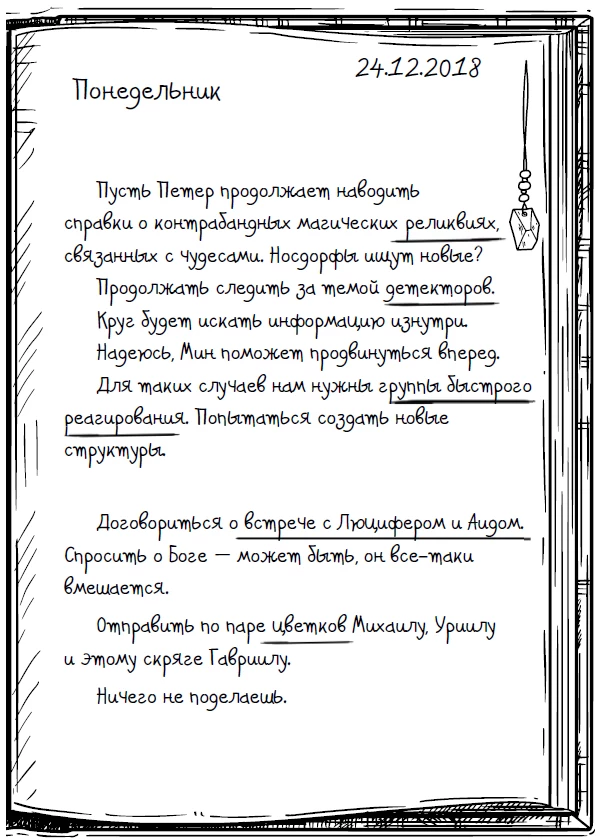 24.12.2018
Понедельник
Пусть Петер продолжает наводить
справки о контрабандных магических реликвиях,
связанных с чудесами. Носдорфы ищут новые?
Продолжать следить за темой детекторов.
Круг будет искать информацию изнутри.
Надеюсь, Мин поможет продвинуться вперед.
Для таких случаев нам нужны группы быстрого
реагирования. Попытаться создать новые
структуры.
Договориться о встрече с Люцифером и Аидом.
Спросить о Боге — может быть, он все-таки
вмешается.
Отправить по паре цветков Михаилу, Уриилу
и этому скряге Гавриилу.
Ничего не поделаешь.